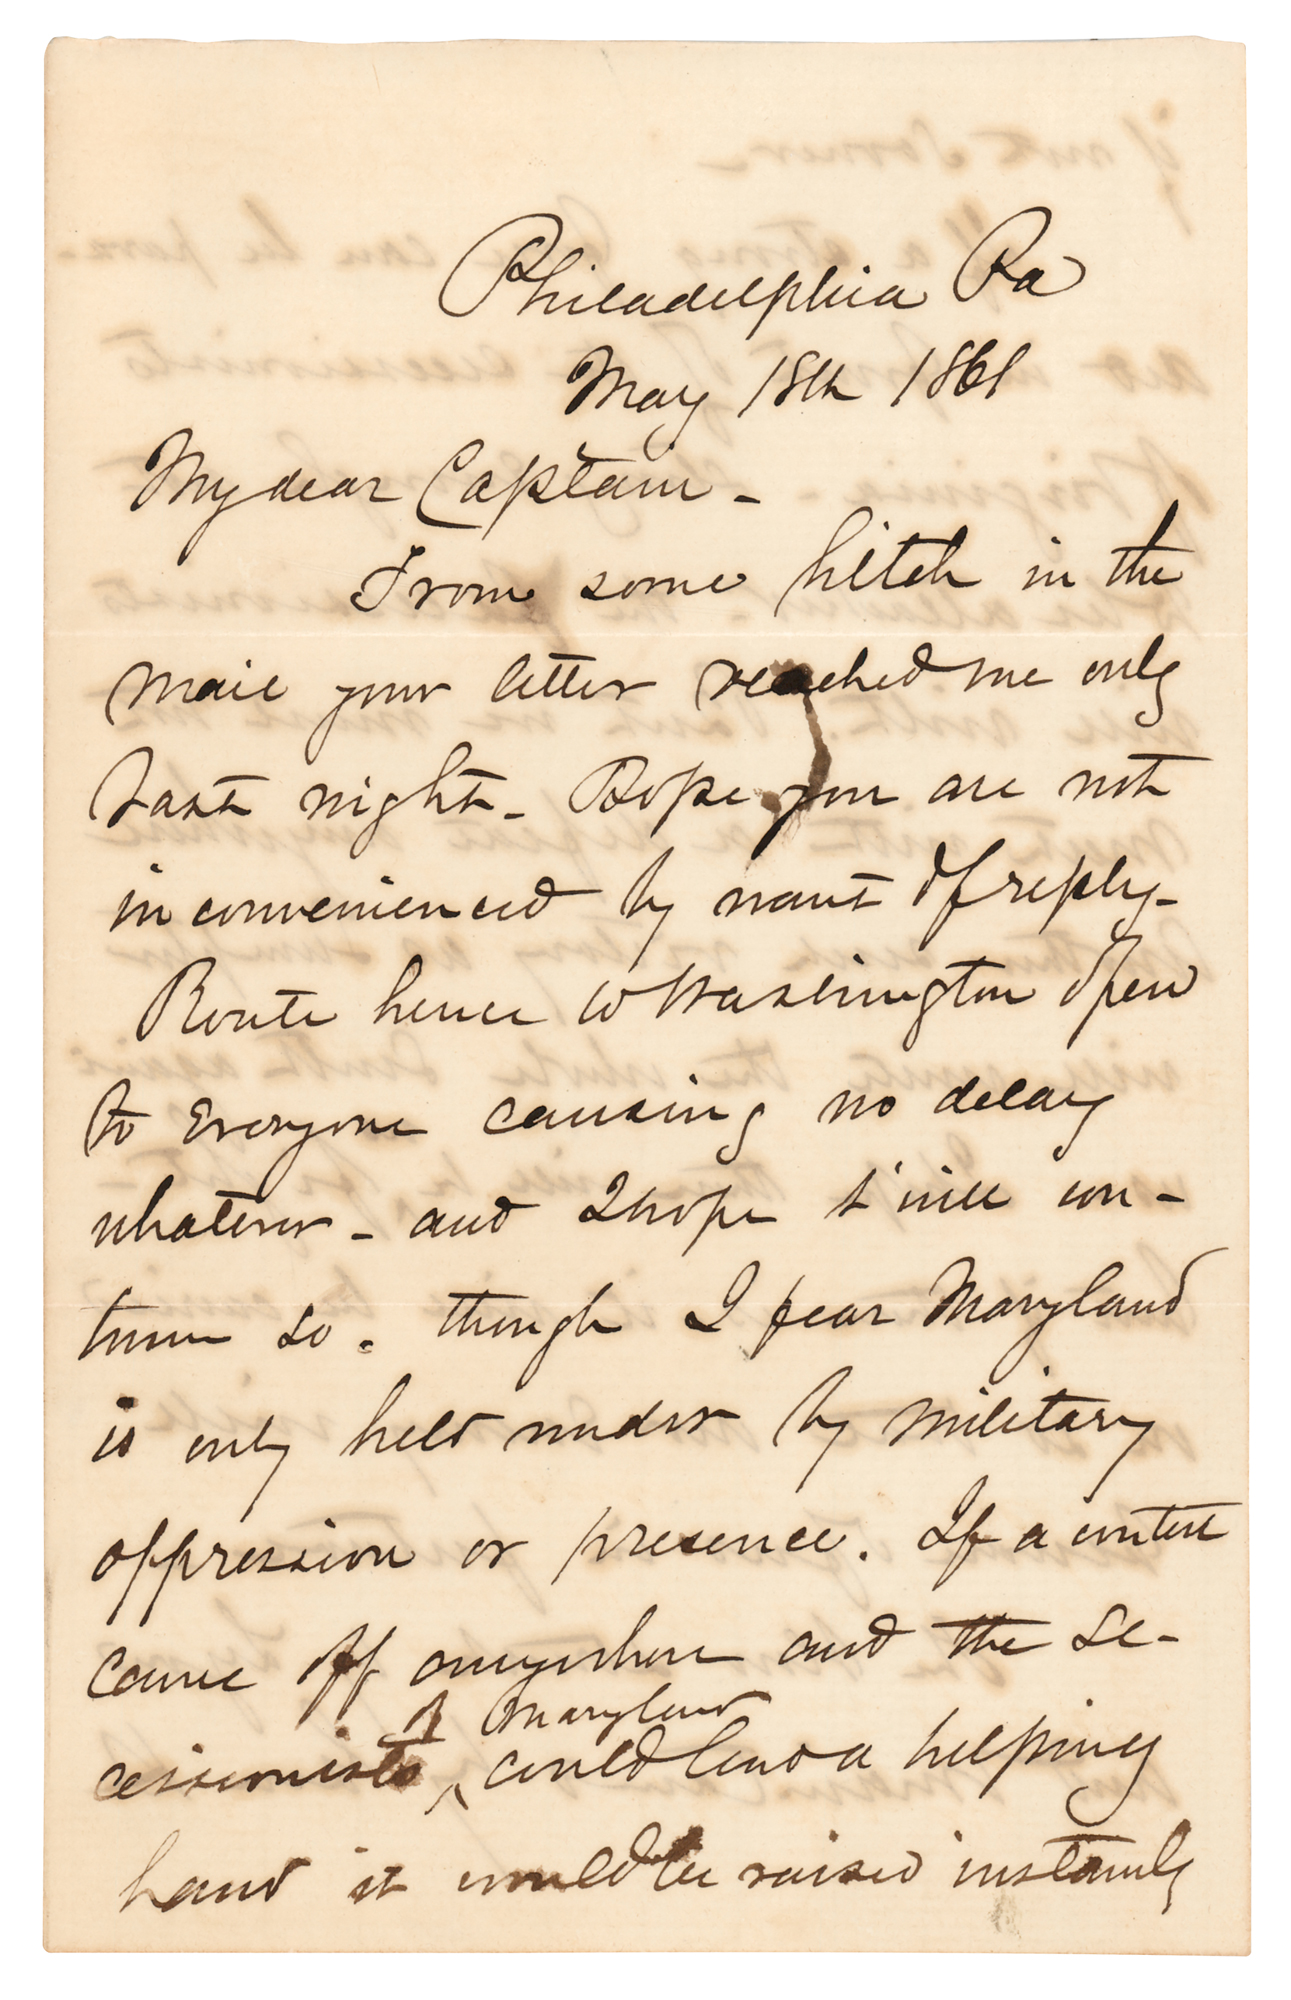 Philadelphia Pa
May 18th 1861
My dear Captain -
From some hitch in the
mail your letter reached me only
last night - Hope you are not
inconvenienced by want of reply -
Route hence to Washington open
to everyone causing no delay
whatever - and I hope t'will con-
tinue so. though I fear Maryland
is only held under by military
oppression or presence. If a contest
came off anywhere and the se-
cessionists of Maryland could lend a helping
hand it would be raised instantly